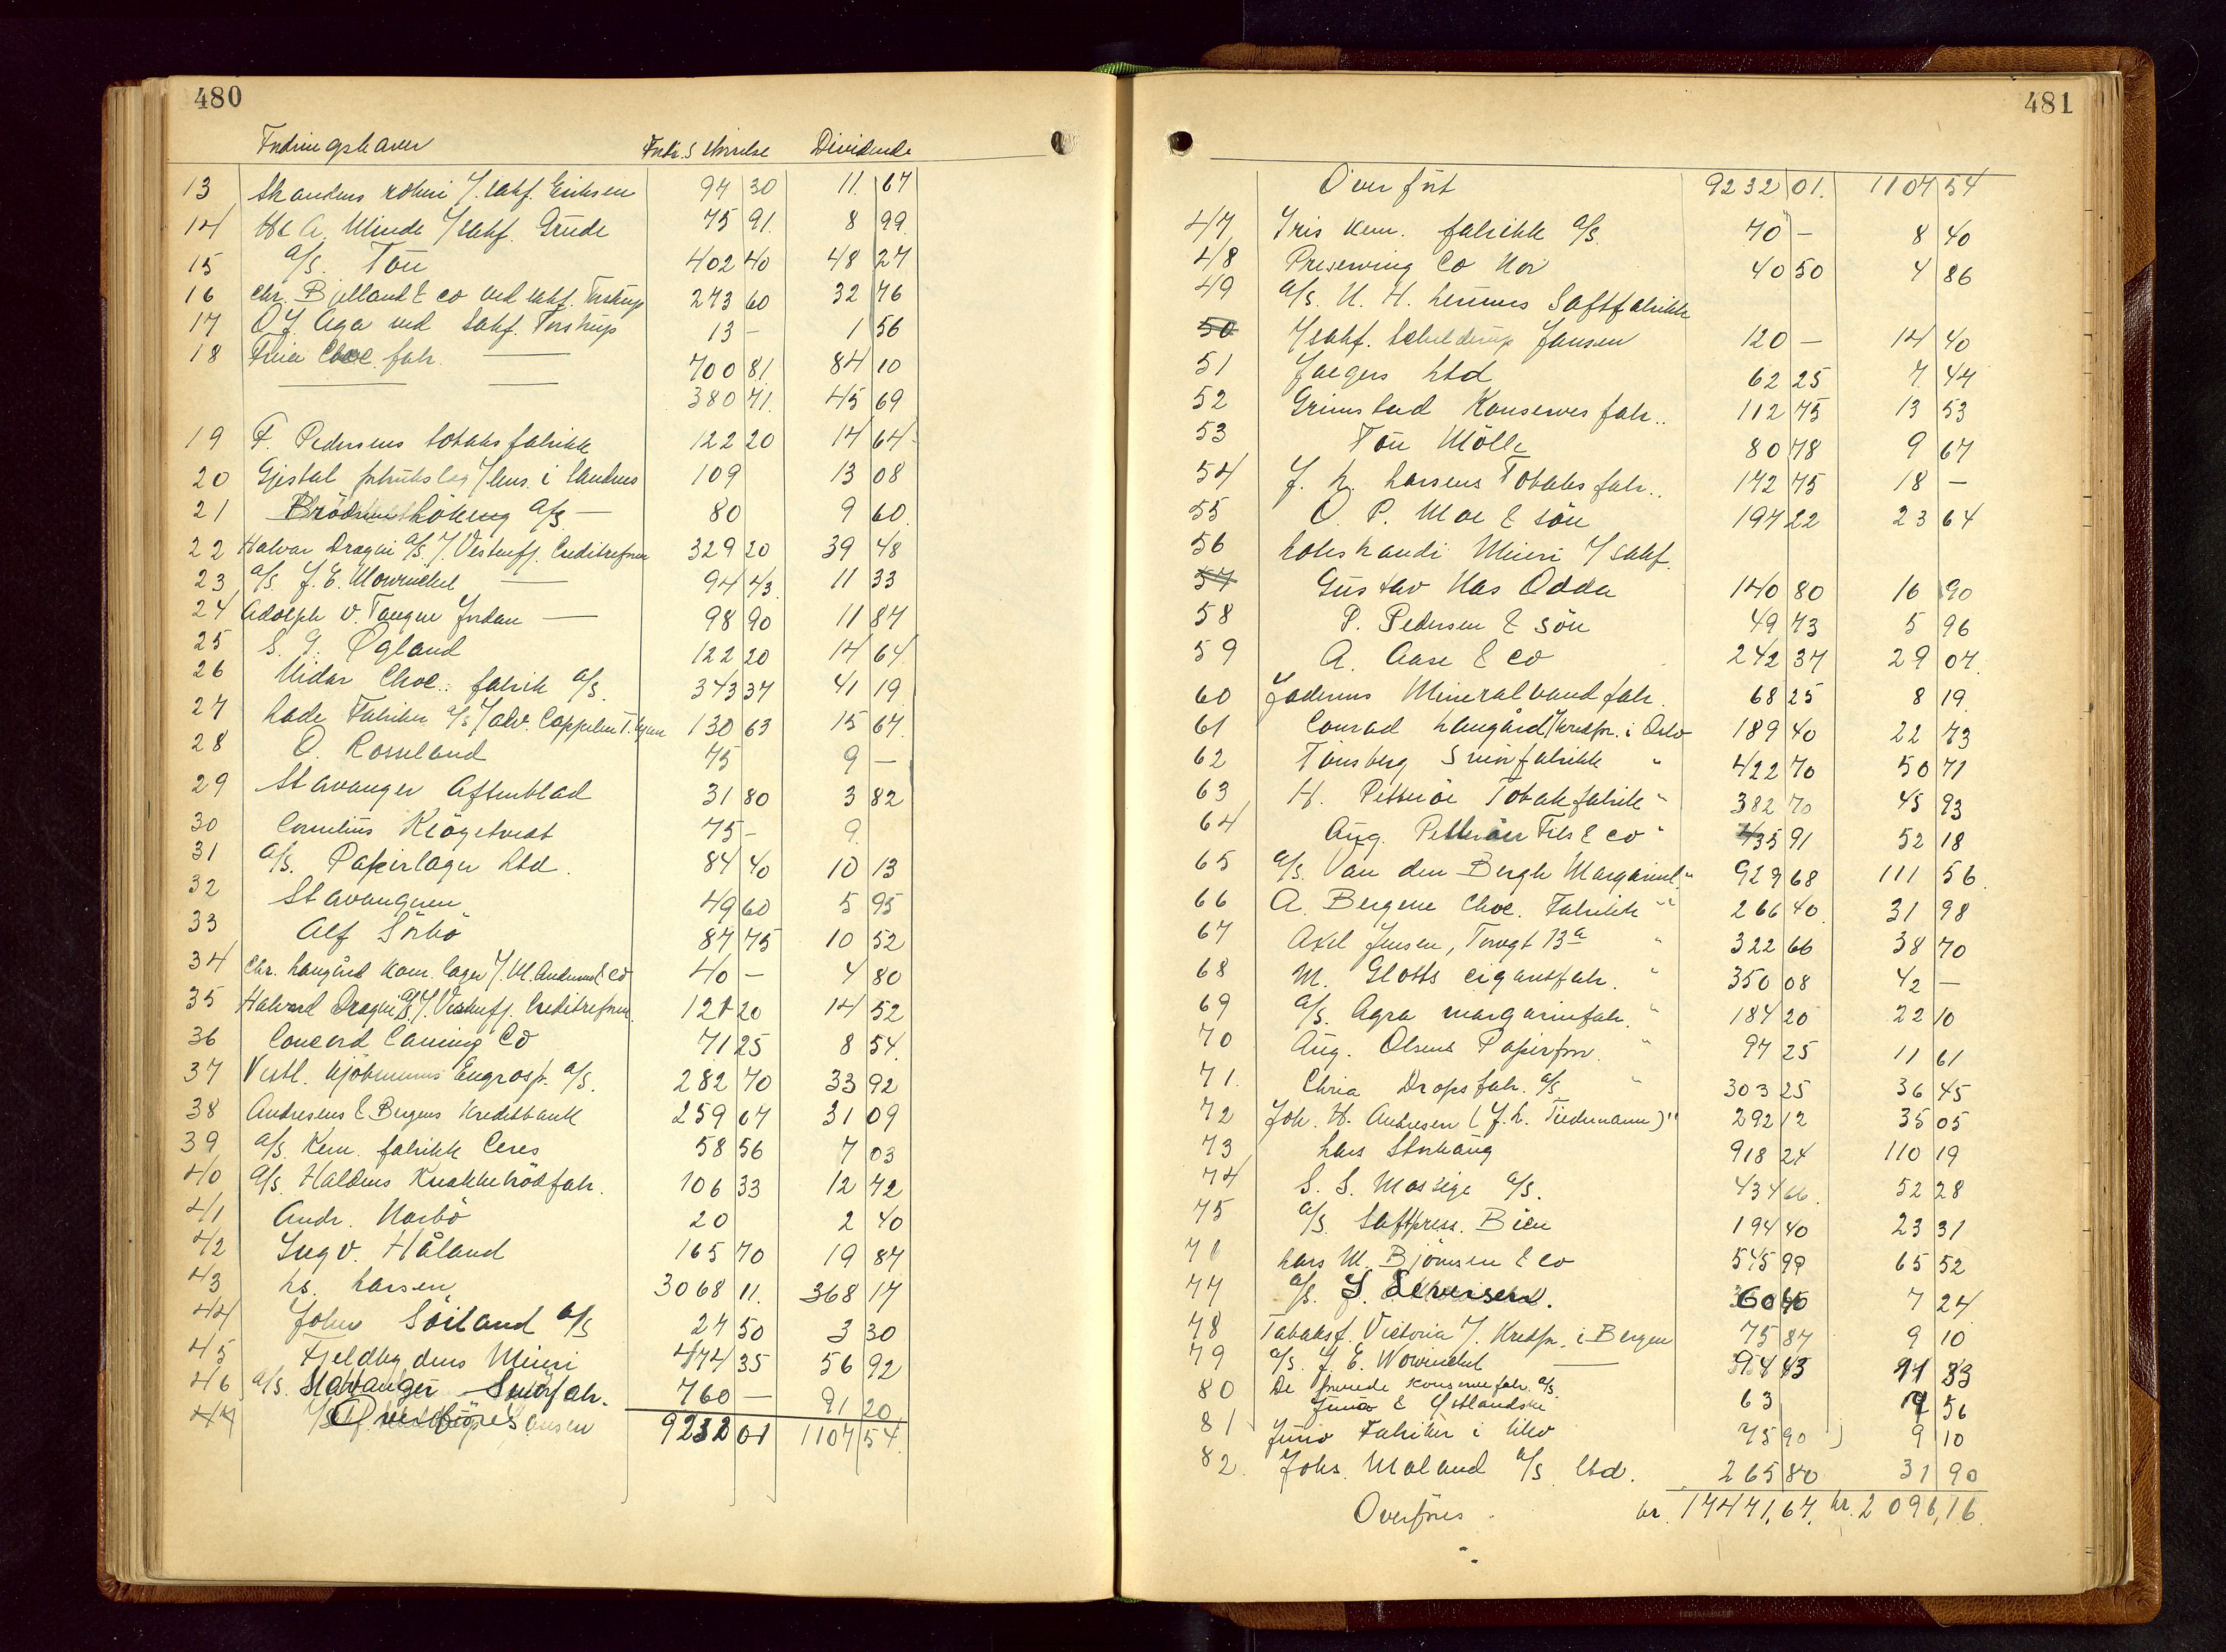 480
Fordringshaver Fordr.s størrelse Dividende
13 v/ sakf. Eriksen 97 30 11 67
14 A. Minde v/ sakf. Grude 75 91 8 99
15 a/s. Tou 402 40 48 27
16 Chr. Bjelland & Co ved sakf. Torstrup 273 60 32 76
17 O. J. Aga ved sakf. Torstrup 13 – 1 56
18 Freia Choc. fabr. — 700 81 84 10
— — 380 71 45 69
19 F. Pedersens tobaksfabrikk 122 20 14 64
20 Gjestal 109 13 08
21 a/s — 80 9 60
22 Halvar Dragøi a/s v/ Vestenfj. Creditreform 329 20 39 48
23 a/s J. E. Mowinckel — 94 43 11 33
24 Adolph v. Tangen Jordan — 98 90 11 87
25 S. G. Øgland 122 20 14 64
26 Nidar Choc. fabrik a/s. 343 37 41 19
27 Lade Fabriker a/s v/ adv. Cappelen 130 63 15 67
28 O. Rosseland 75 9 —
29 Stavanger Aftenblad 31 80 3 82
30 Cornelius Kløgetvedt 75 – 9
31 a/s. Papirlager Ltd. 84 40 10 13
32 Stavangeren 49 60 5 95
33 Alf Sörbö 87 75 10 52
34 Chr. Haugård Kom. lager v/ M. Andersen & Co 40 – 4 80
35 Halvard Dragøi a/s v/ Vestenfj. Creditreform 121 20 14 52
36 Concord Caning Co 71 25 8 54
37 Vestl. Kjöbmenns Engrosf. a/s. 282 70 33 92
38 Andresens & Bergens Kreditbank 259 07 31 09
39 a/s. Kem. fabrikk Ceres 58 56 7 03
40 a/s. Haldens Knækkebrödfabr. 106 33 12 72
41 Andr. Narbö 20 2 40
42 Ingv. Håland 165 70 19 87
43 Ls. Larsen 3068 11 368 17
44 John Söiland a/s 27 50 3 30
45 Fjeldbygdens Meieri 474 35 56 92
46 a/s. Stavanger Smörfabr. 760 — 91 20
47 Overföres 9232 01 1107 54
481
Overfört 9232 01 1107 54
47 Iris kem. fabrikk a/s. 70 – 8 40
48 Preserving Co Nor 40 50 4 86
49 a/s. Saftfabrikk
50 v/ sakf. Schelderup Jansen 120 – 14 40
51 Jaegers Ltd 62 25 7 47
52 Grimstad Konserves fabr. 112 75 13 53
53 Tou Mölle 80 78 9 67
54 J. L. Larsens Tobaks fabr. 142 75 18 –
55 O. P. Moe & sön 197 22 23 64
56 Meieri v/ sakf.
57 Gustav Næs Odda 140 80 16 90
58 P. Pedersen & sön 49 73 5 96
59 A. Aase & Co 242 37 29 07
60 Jæderens Mineralvand fabr. 68 25 8 19
61 Conrad Langård v/ kredfor. i Oslo 189 40 22 73
62 Tönsberg Smörfabrikk " 422 70 50 71
63 H. Petteröe Tobakfabrik " 382 70 45 93
64 Aug. Pellerin Fils & Co " 435 91 52 18
65 a/s. Van den Bergh Margarinf. " 929 68 111 56
66 A. Bergene Choc. Fabrikk " 266 40 31 98
67 Axel Jensen, Torvgt 13a " 322 66 38 70
68 M. Glotts cigaretfabr. " 350 08 42 –
69 a/s. Agra margarinfabr. " 184 20 22 10
70 Aug. Olsens Papirforr. " 97 25 11 61
71 Chria Dropsfabr. a/s " 303 25 36 45
72 Joh. H. Andresen (J. L. Tiedemann) " 292 12 35 05
73 Lars Storhaug 918 24 110 19
74 S. S. Massige a/s. 434 66 52 28
75 a/s Saftpress. Bien 194 40 23 31
76 Lars M. Björnsen & Co 545 99 65 52
77 a/s. 60 40 7 24
78 Tobaksf. Victoria v/ Kredfor. i Bergen 75 87 9 10
79 a/s. J. E. Mowinckel — 94 43 11 33
80 De forenede Konservefabr. a/s.
63 7 56
81 Juno Fabriker i 75 90 9 10
82 Johs. Maland a/s Ltd. 265 80 31 90
Overföres kr. 17471,67. kr. 2096,16